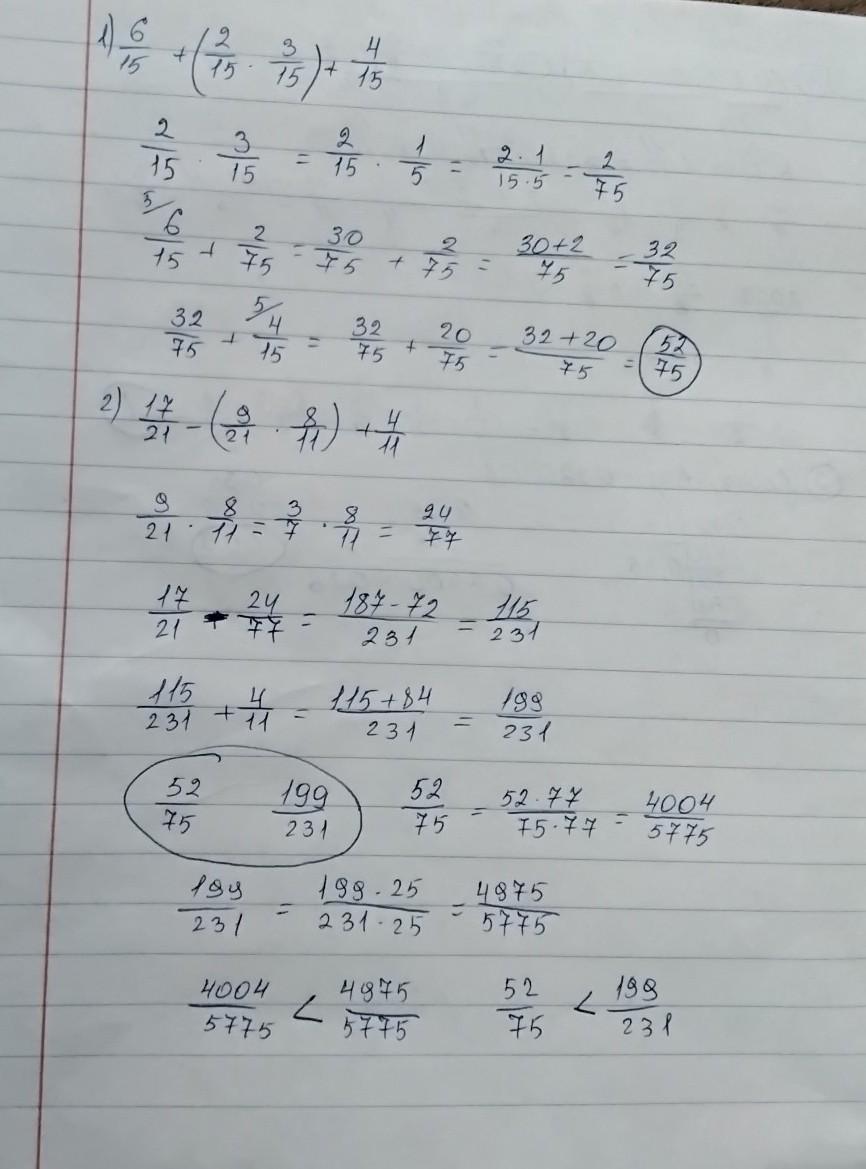 1) 6/15 + (2/15 · 3/15) + 4/15
2/15 · 3/15 = 2/15 · 1/5 = 2·1/15·5 = 2/75
5/ 6/15 + 2/75 = 30/75 + 2/75 = 30+2/75 = 32/75
32/75 + 5/ 4/15 = 32/75 + 20/75 = 32+20/75 = 52/75
2) 17/21 - (9/21 · 8/11) + 4/11
9/21 · 8/11 = 3/7 · 8/11 = 24/77
17/21 - 24/77 = 187-72/231 = 115/231
115/231 + 4/11 = 115+84/231 = 199/231
52/75 199/231 52/75 = 52·77/75·77 = 4004/5775
199/231 = 199·25/231·25 = 4975/5775
4004/5775 < 4975/5775 52/75 < 199/231